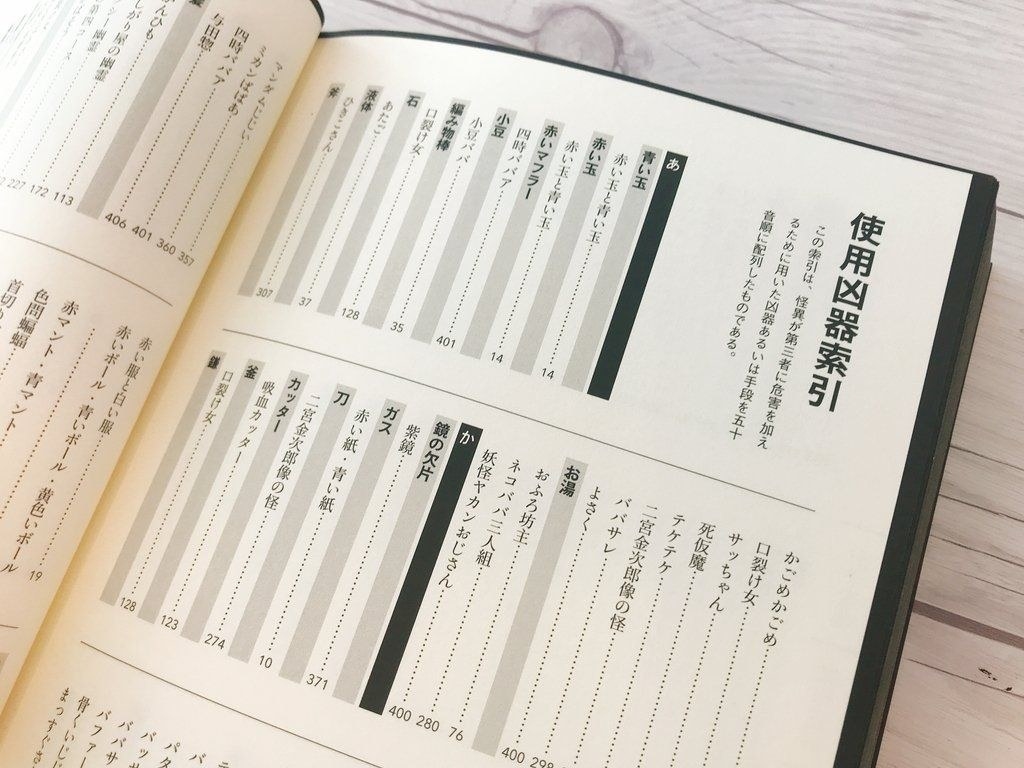 使用凶器索引
この索引は、怪異が第三者に危害を加え
るために用いた凶器あるいは手段を五十
音順に配列したものである。
あ
青い玉
赤い玉と青い玉 14
赤い玉
赤い玉と青い玉 14
赤いマフラー
四時ババア 401
小豆
小豆ババ 35
編み物棒
口裂け女 128
石
あたご 37
液体
ひきこさん 307
斧
かごめかごめ
口裂け女
サッちゃん
死仮魔
テケテケ
二宮金次郎像の怪
ババサレ 298
よさく 400
お湯
おふろ坊主 76
ネコババ三人組 280
妖怪ヤカンおじさん 400
か
鏡の欠片
紫鏡 371
ガス
赤い紙・青い紙 10
刀
二宮金次郎像の怪 274
カッター
吸血カッター 123
釜
口裂け女 128
鎌
ババサ
骨くいじじ
まっすぐさ
ミカンばばあ 357
四時ババア 360
与田惣 401
406
113
172
227
赤い服と白い服
赤いボール・青いボール・黄色いボール 19
赤マント・青マント
色問蝙蝠
首切り